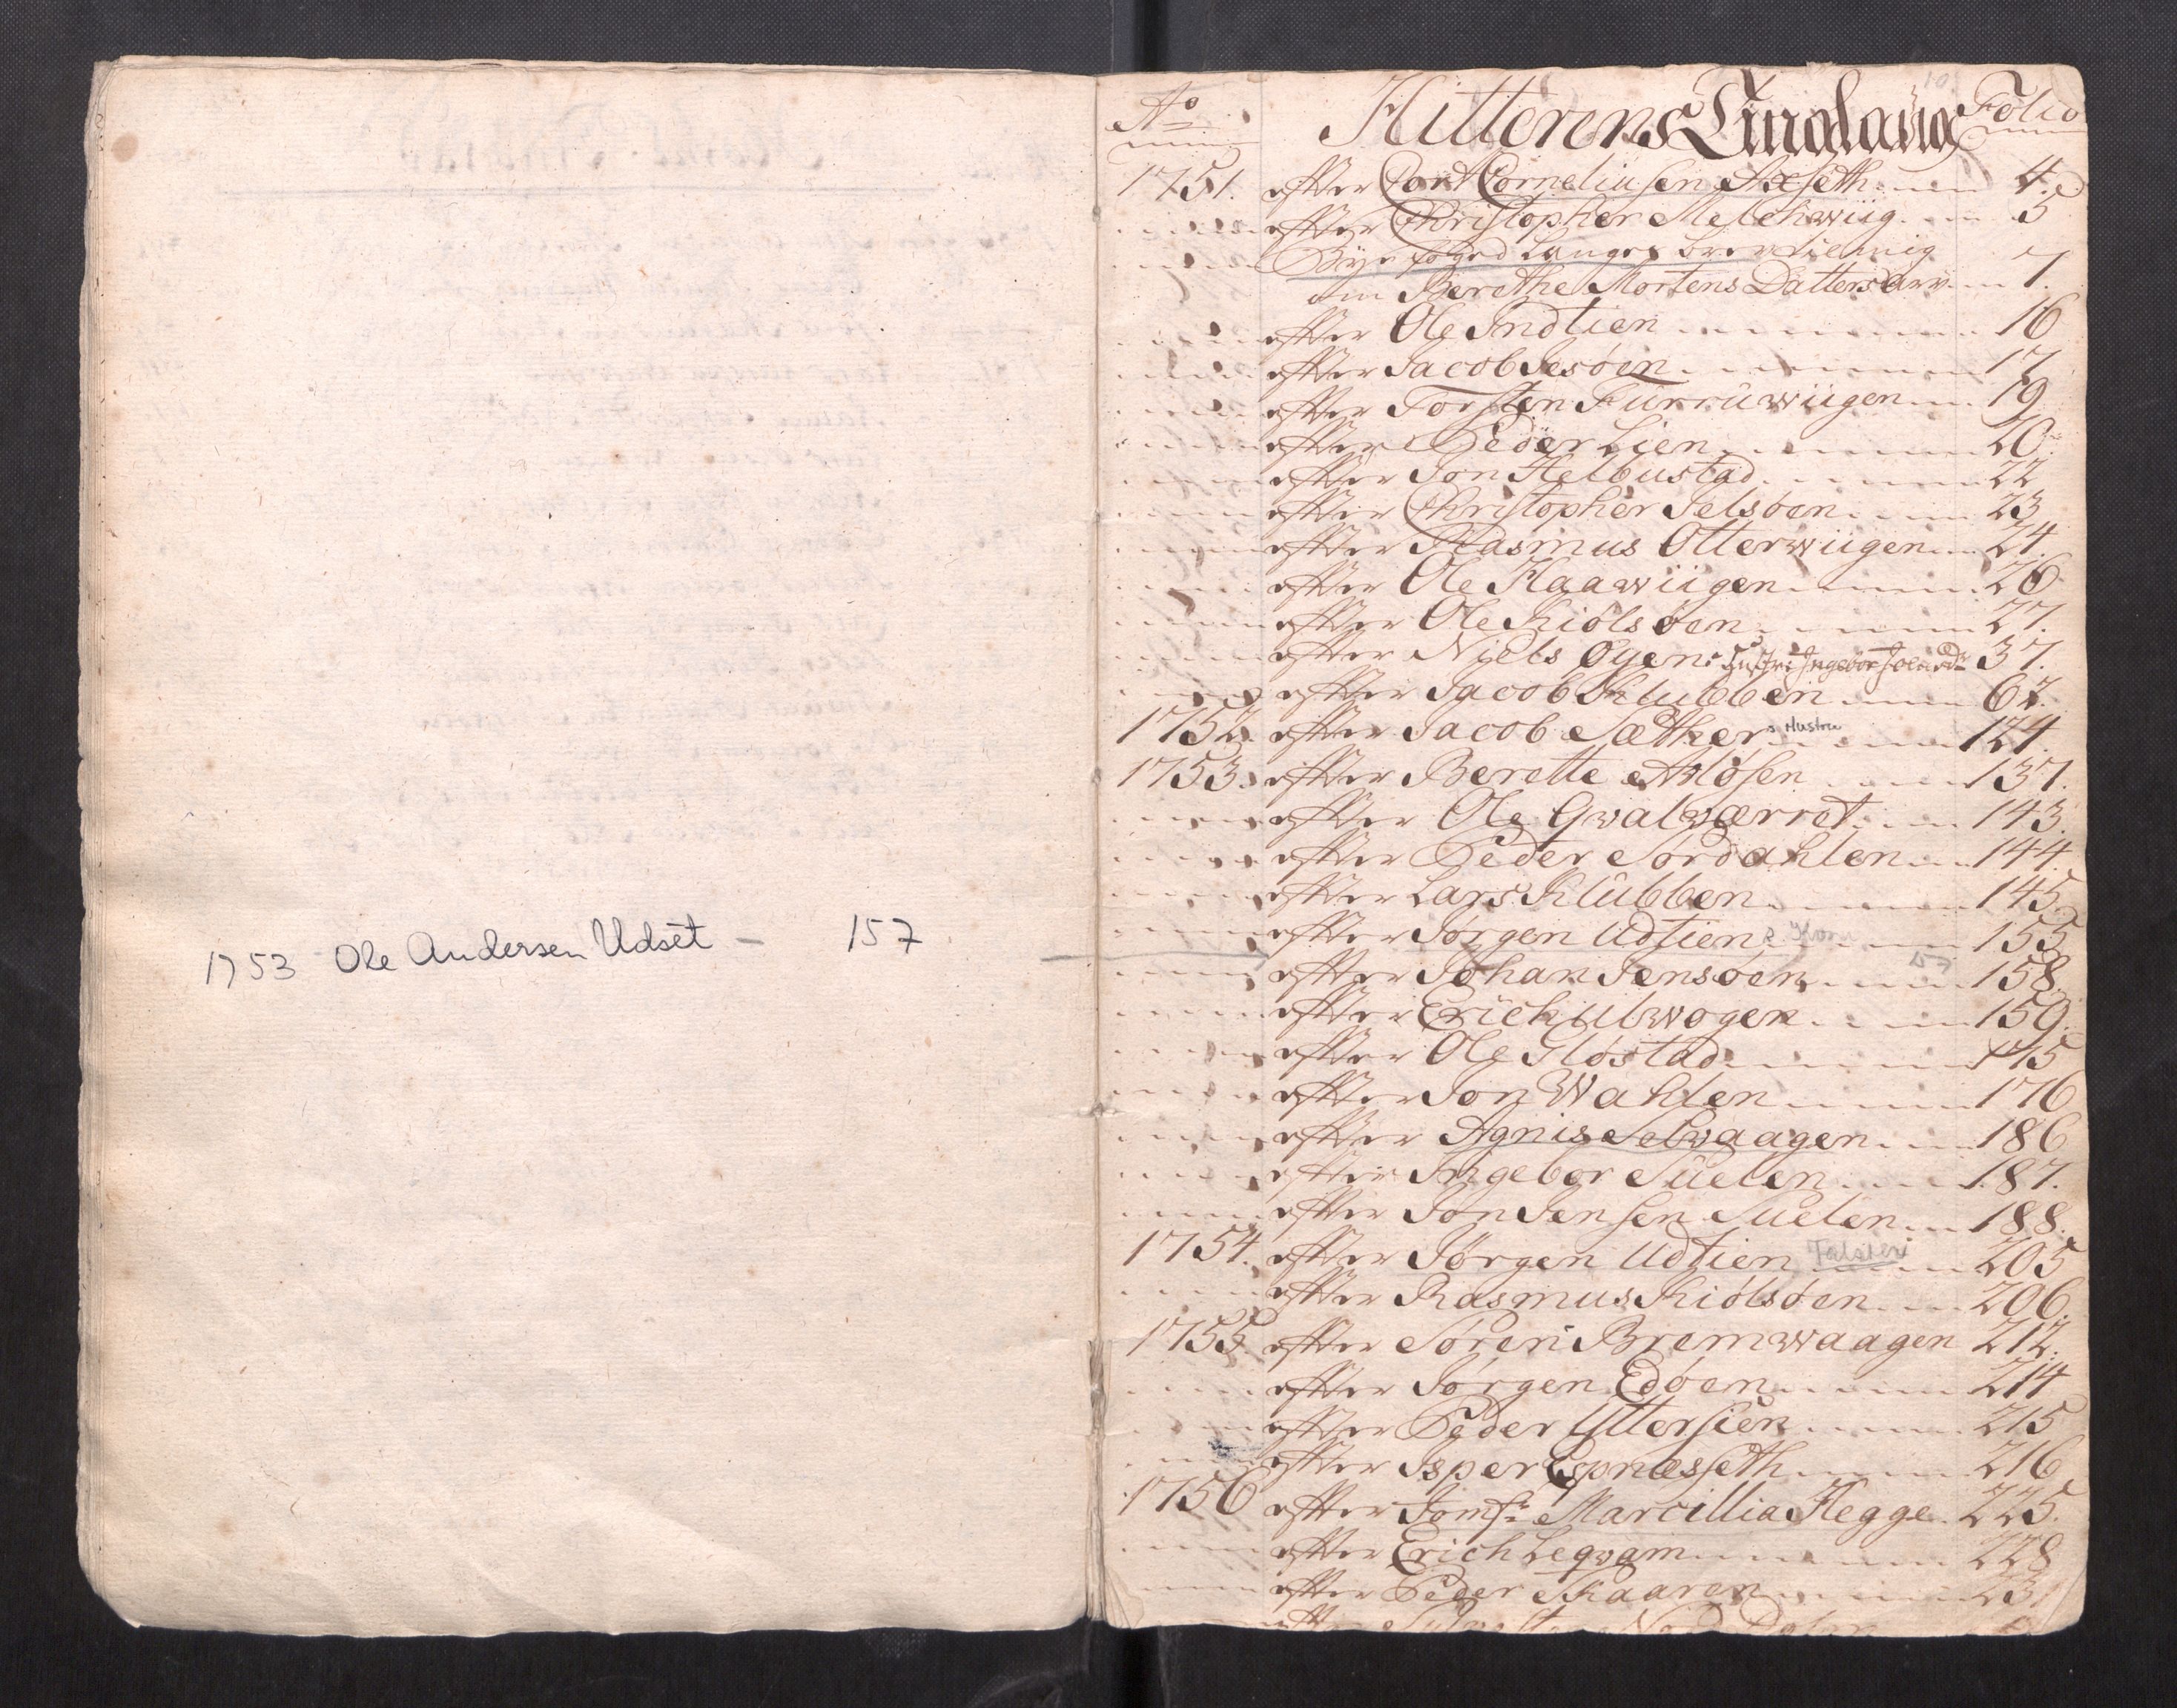 1753 Ole Andersen Udset - 157
10
Ao Hitterens Tinglaug Folio
1751. efter Cort Corneliusen Axseth 4.
efter Christopher Melchwiig 5
Bÿe foged Langes brev til mig
om Berethe Mortens Datters arv 7.
efter Ole Indtien 16
efter Jacob Jesøen 17
efter Torsten Furruwiigen 19
efter Peder Lien 20.
efter Jon Helbustad 22
efter Christopher Jelsøen 23
efter Rasmus Otterwiigen 24.
efter Ole Haawiigen 26
efter Ole Kiølsøen 27.
efter Niels Øyens Hustr: Ingebor Joensdr 37.
efter Jacob Klubben 67.
1752. efter Jacob Sæther s Hustru 124.
1753. efter Berette Aaløsen 137.
efter Ole Qvalværret 143.
efter Peder Sørdahlen 144.
efter Lars Klubben 145.
efter Jørgen Udtien 155
157
efter Johan Jensøen 158.
efter Erich Ulwogen 159.
efter Ole Fløstad 175
efter Jon Wahlen 176
efter Agnis Selvaagen 186
efter Ingebor Suelen 187.
efter Jon Jensen Suelen 188.
1754. efter Jørgen Udtien 205
efter Rasmus Kiølsøen 206.
1755 efter Søren Bremwaagen 212.
efter Jørgen Edøen 214
efter Peder Yttersien 215
efter Isper Espnæsseth 216
1756 efter Jomfr: Marcillia Hegge 225.
efter Erich Leqvam 228
efter Peder Skaaren 231